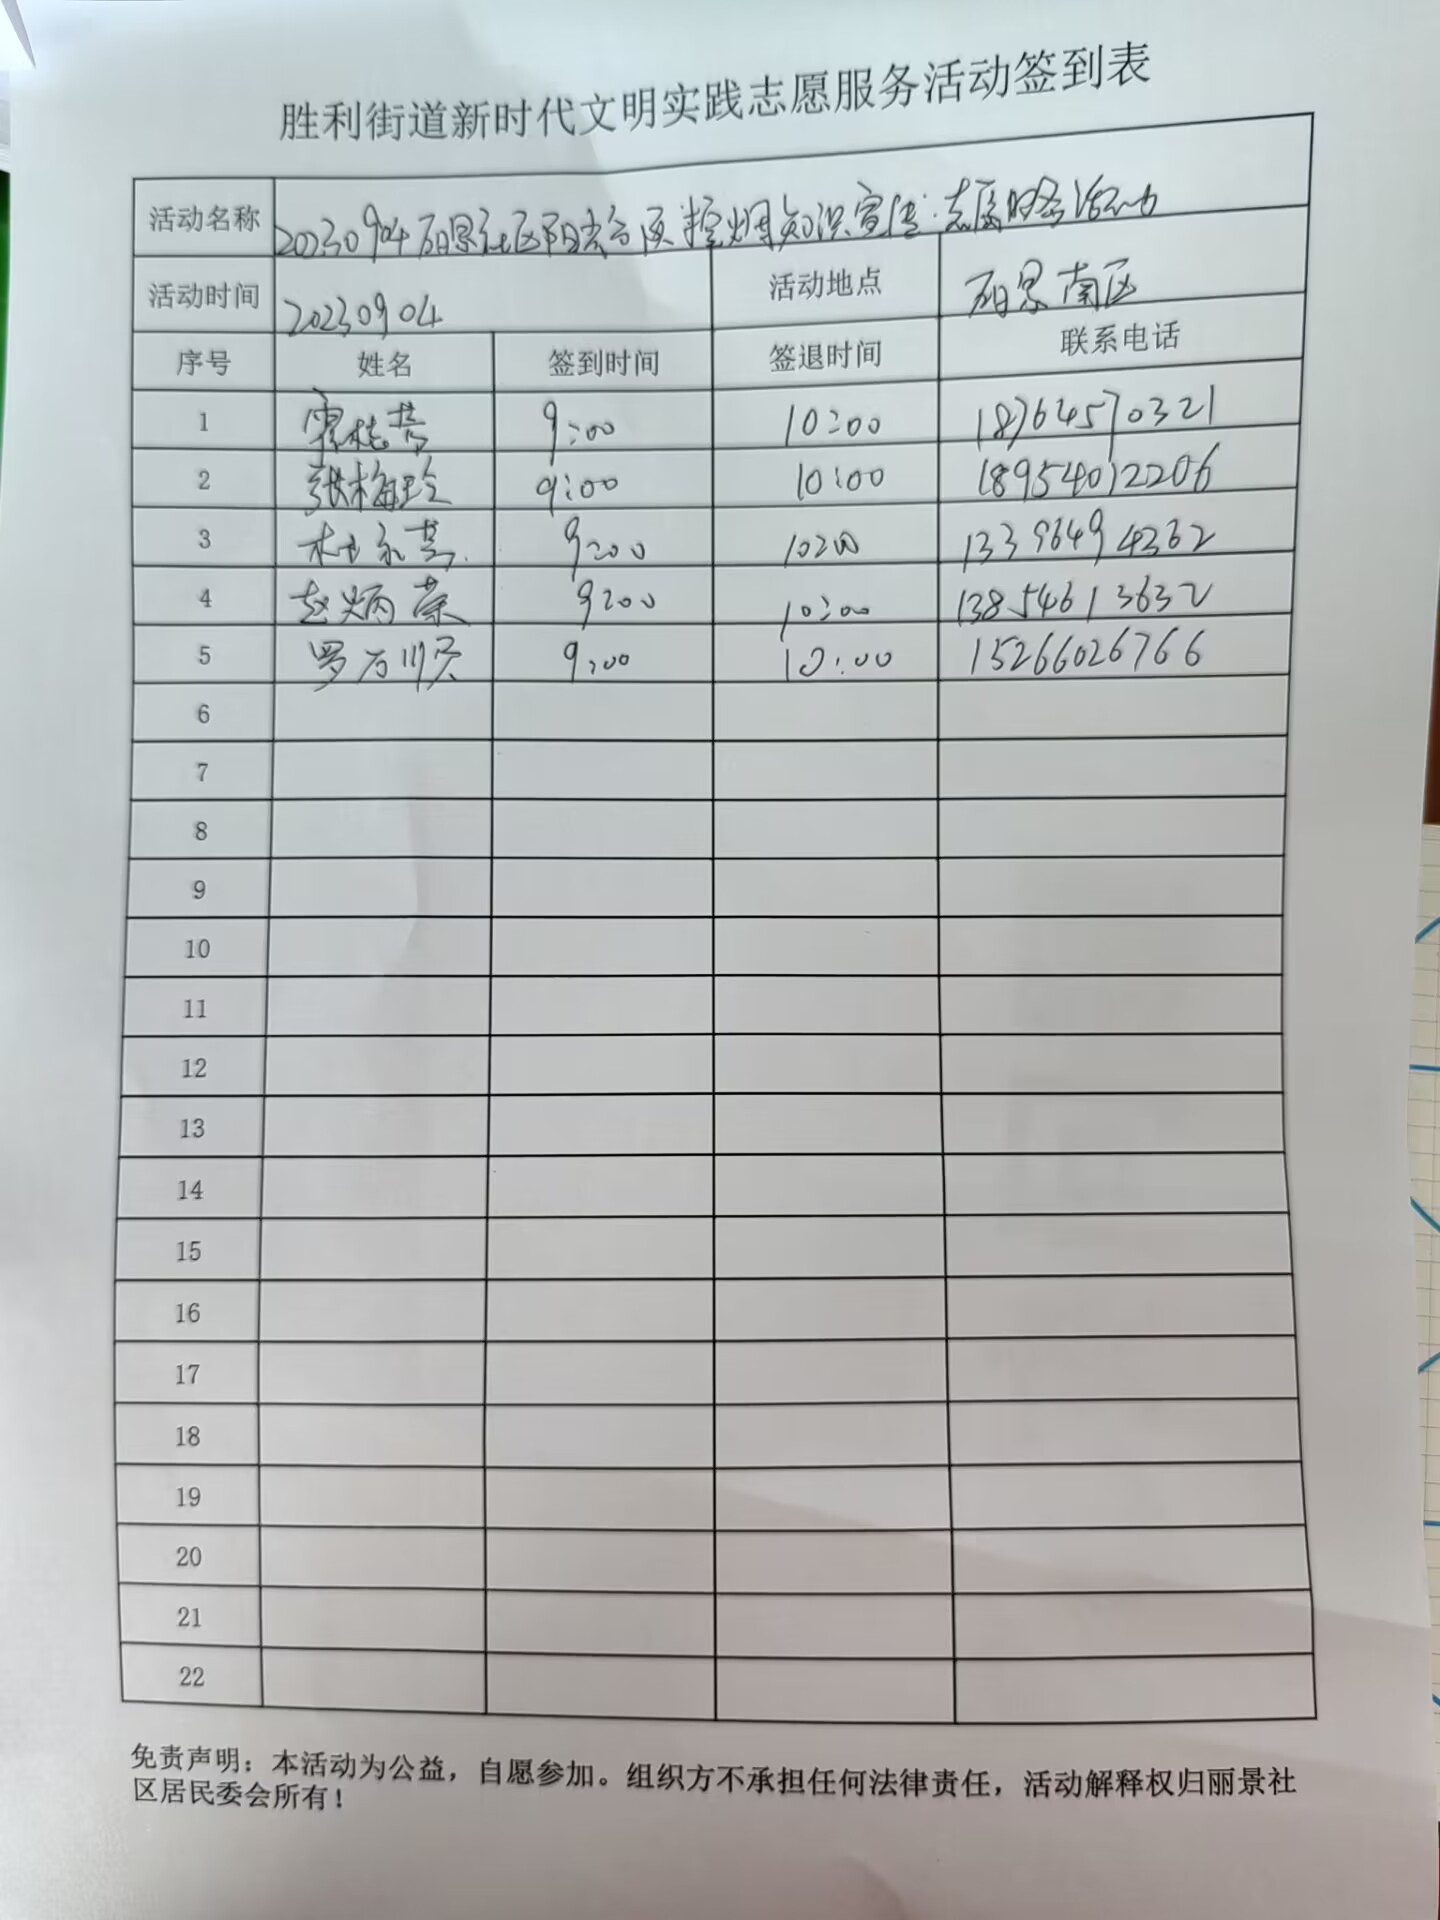 胜利街道新时代文明实践志愿服务活动签到表
活动名称 20230904丽景社区阳光台区控烟知识宣传志愿服务活动
活动时间 20230904 活动地点 丽景南区
序号 姓名 签到时间 签退时间 联系电话
1 霍桂芳 9:00 10:00 18764570321
2 张梅玲 9:00 10:00 18954012206
3 杜永芸 9:00 10:00 13396494362
4 赵炳荣 9:00 10:00 13854613632
5 罗万顺 9:00 10:00 15266026766
6
7
8
9
10
11
12
13
14
15
16
17
18
19
20
21
22
免责声明：本活动为公益，自愿参加。组织方不承担任何法律责任，活动解释权归丽景社
区居民委会所有！